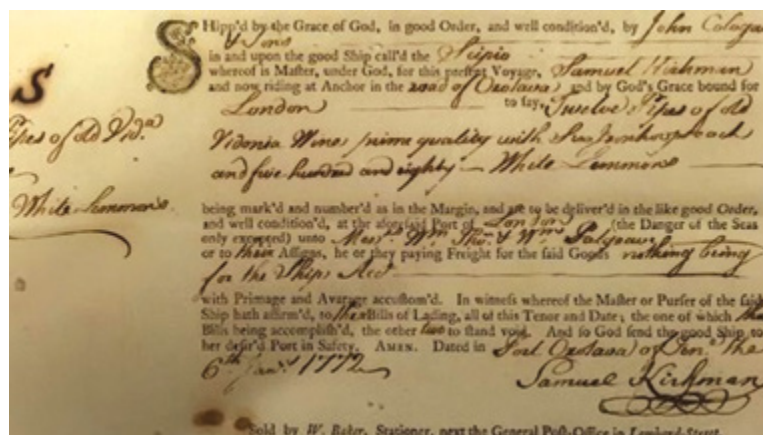 SHipp'd by the Grace of God, in good Order, and well condition'd, by John Cologan
& Sons
in and upon the good Ship call'd the Scipio
whereof is Master, under God, for this present Voyage, Samuel Kirkman
and now riding at Anchor in the road of Orotava and by God's Grace bound for
London to say, Twelve Pipes of old
Vidonia Wine prime quality with Six Iron hoops each
and five hundred and eighty White Lemmons
S
Pipes of old Vid.a
White Lemmons.
being mark'd and number'd as in the Margin, and are to be deliver'd in the like good Order,
and well condition'd, at the aforesaid Port of London (the Danger of the Seas
only excepted) unto Mess.rs Wm. Tho.s & Wm.
or to their Assigns, he or they paying Freight for the said Goods nothing being
for the Ships Acct
with Primage and Avarage accustom'd. In witness whereof the Master or Purser of the said
Ship hath affirm'd, to three Bills of Lading, all of this Tenor and Date; the one of which three
Bills being accomplish'd, the other two to stand void. And so God send the good Ship to
her desir'd Port in Safety. AMEN. Dated in Port Orotava of Ten.e the
6th Jan.y 1772
Samuel Kirkman
Sold by W. Baker, Stationer, next the General Post-Office in Lombard-Street